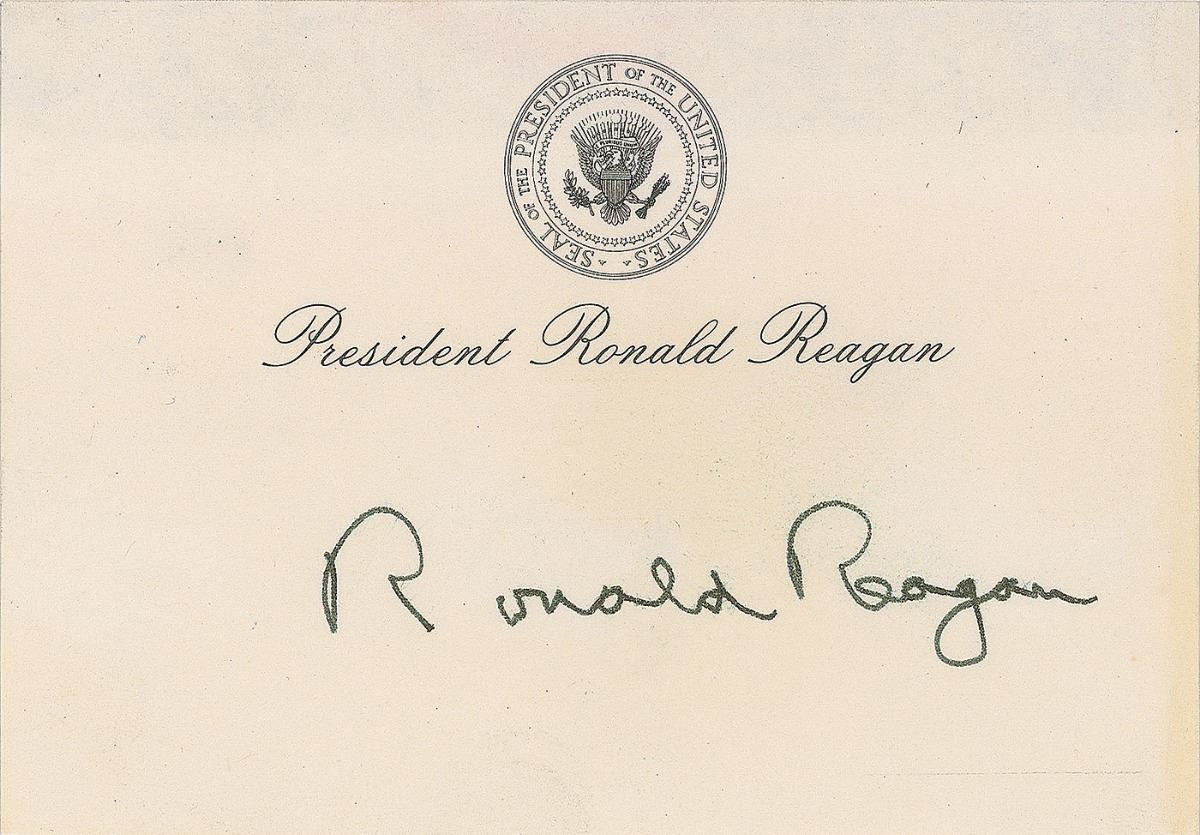 SEAL OF THE PRESIDENT OF THE UNITED STATES
E PLURIBUS UNUM
President Ronald Reagan
Ronald Reagan